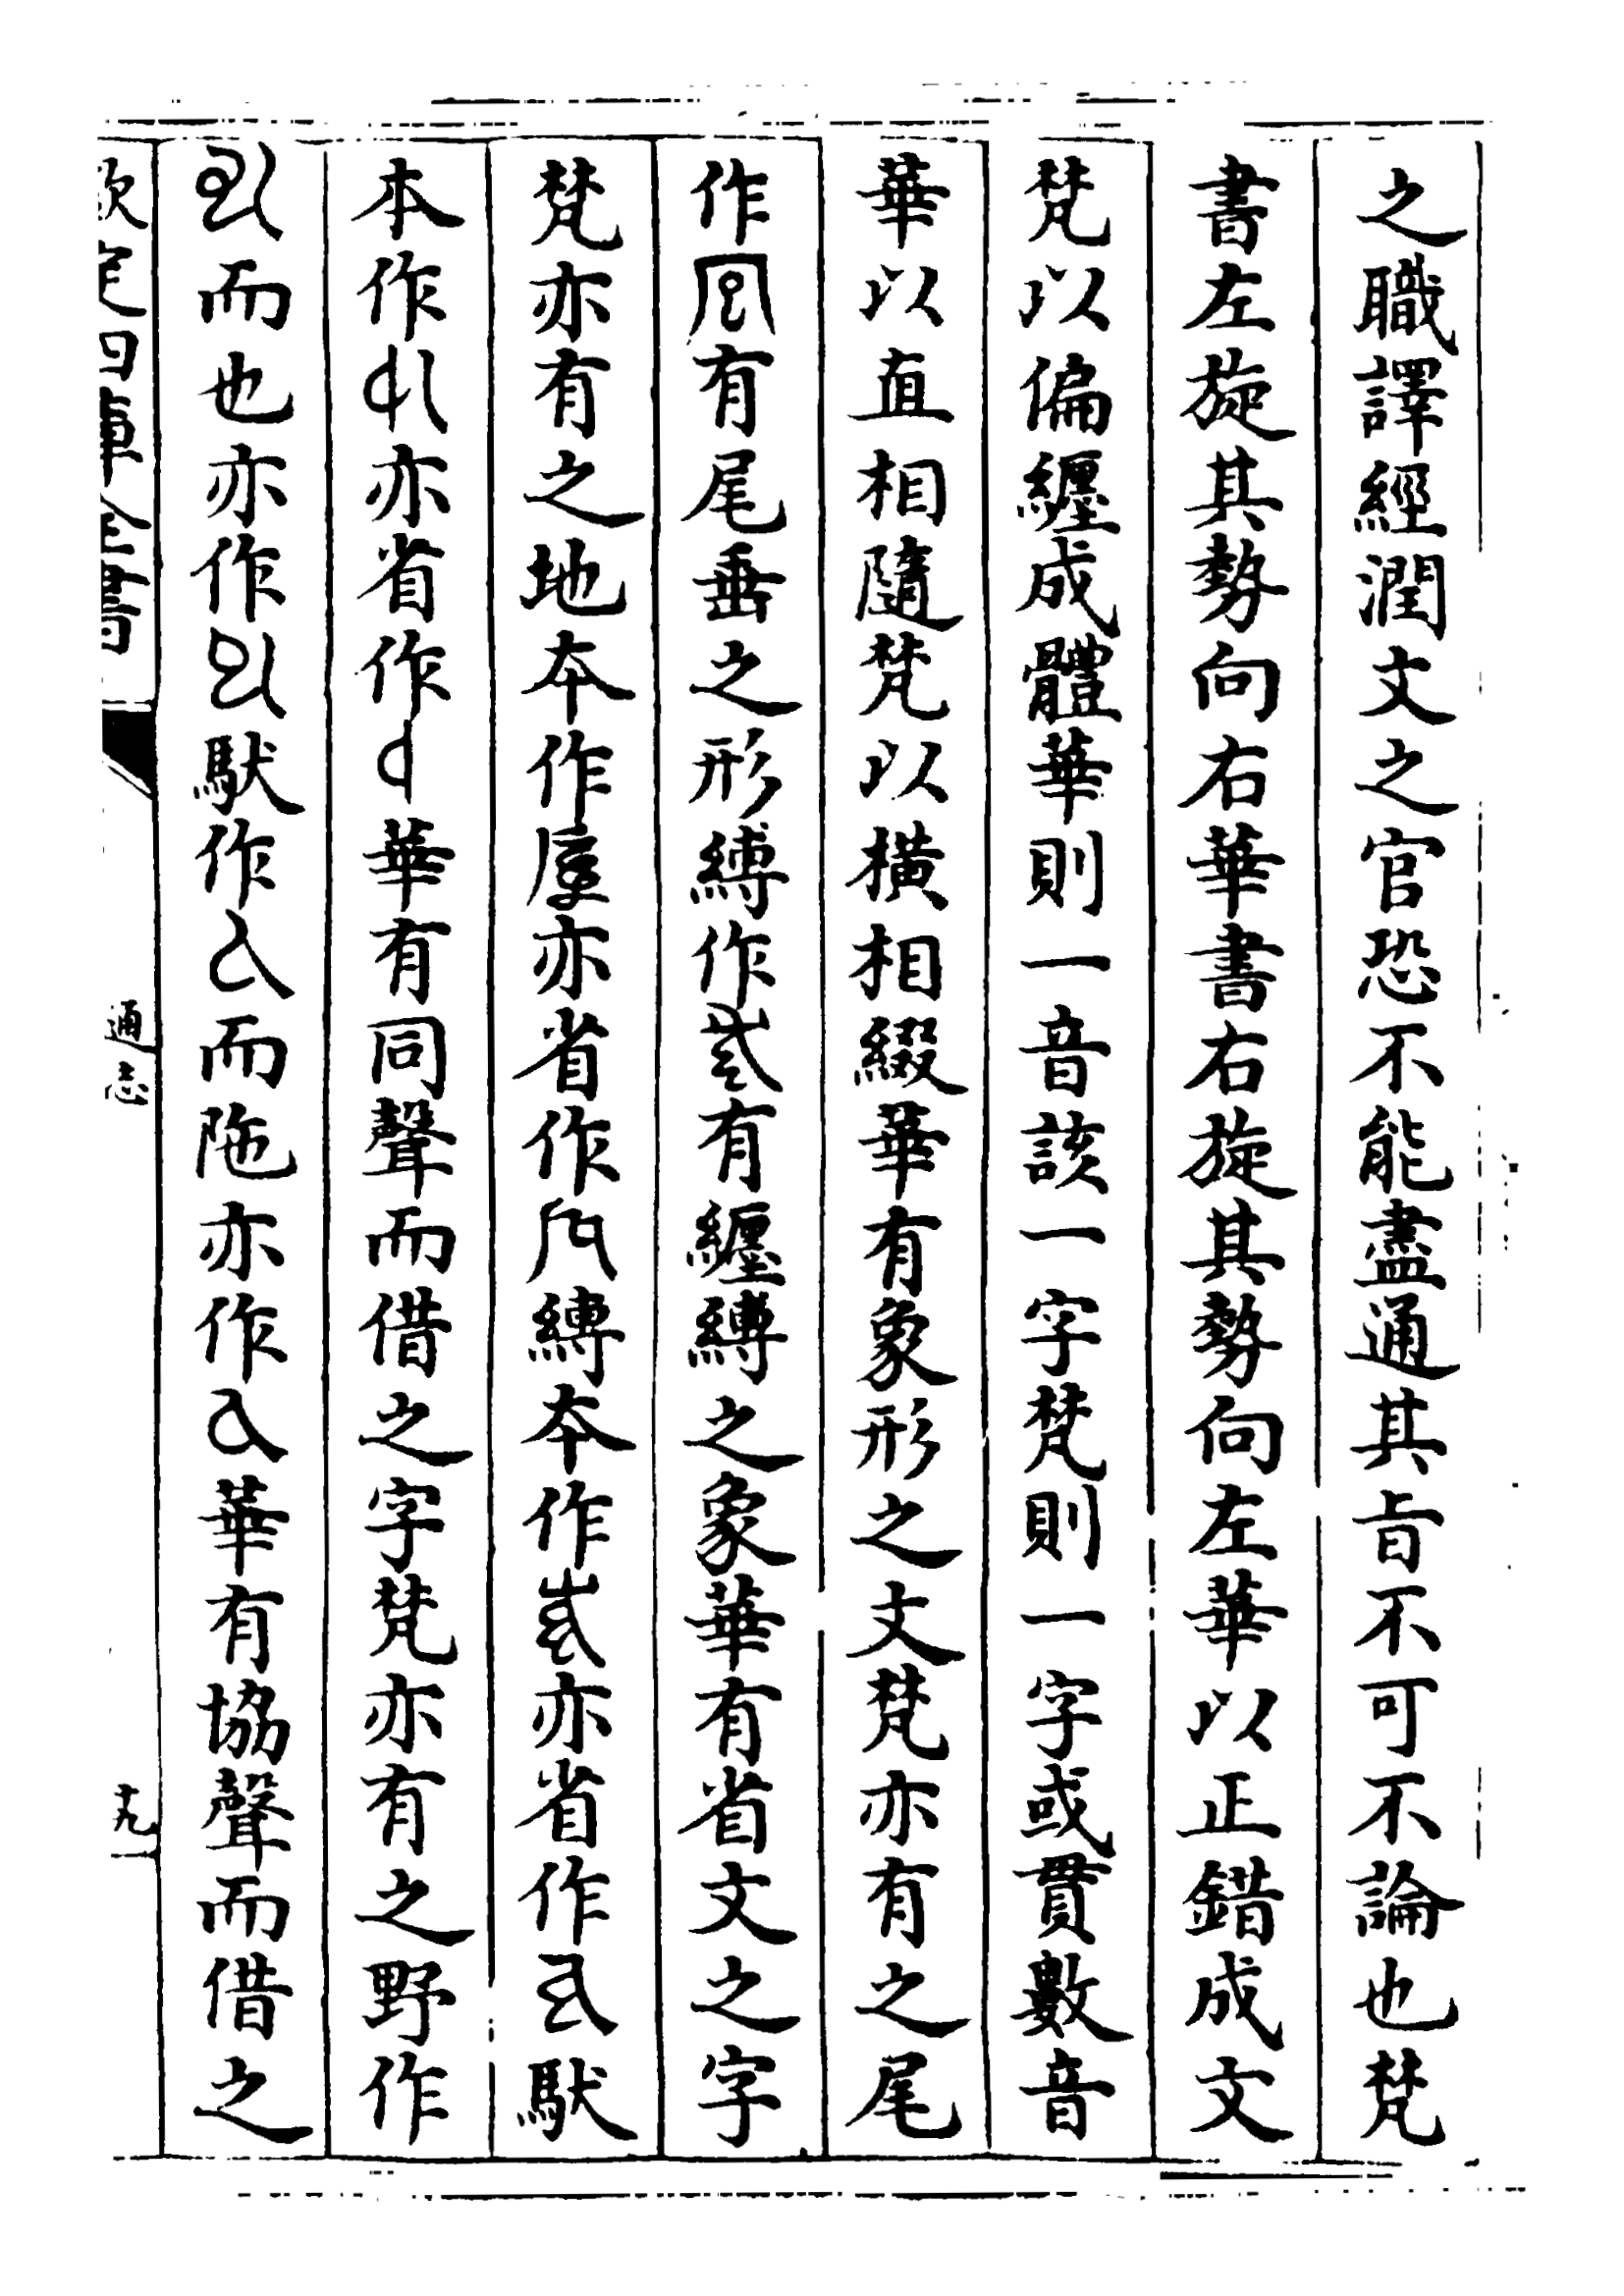 之職譯經潤文之官恐不能盡通其旨不可不論也梵
書左旋其勢向右華書右旋其勢向左華以正錯成文
梵以偏纏成體華則一音該一字梵則一字或貫數音
華以直相隨梵以橫相綴華有象形之文梵亦有之尾
作有尾垂之形縛作有纏縛之象華有省文之字
梵亦有之地本作亦省作縛本作亦省作馱
本作亦省作華有同聲而借之字梵亦有之野作
而也亦作馱作而陁亦作華有協聲而借之
欽定四庫全書
通志
十九